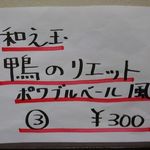 和え玉
鴨のリエット
ポワブルベール風
③ ¥300